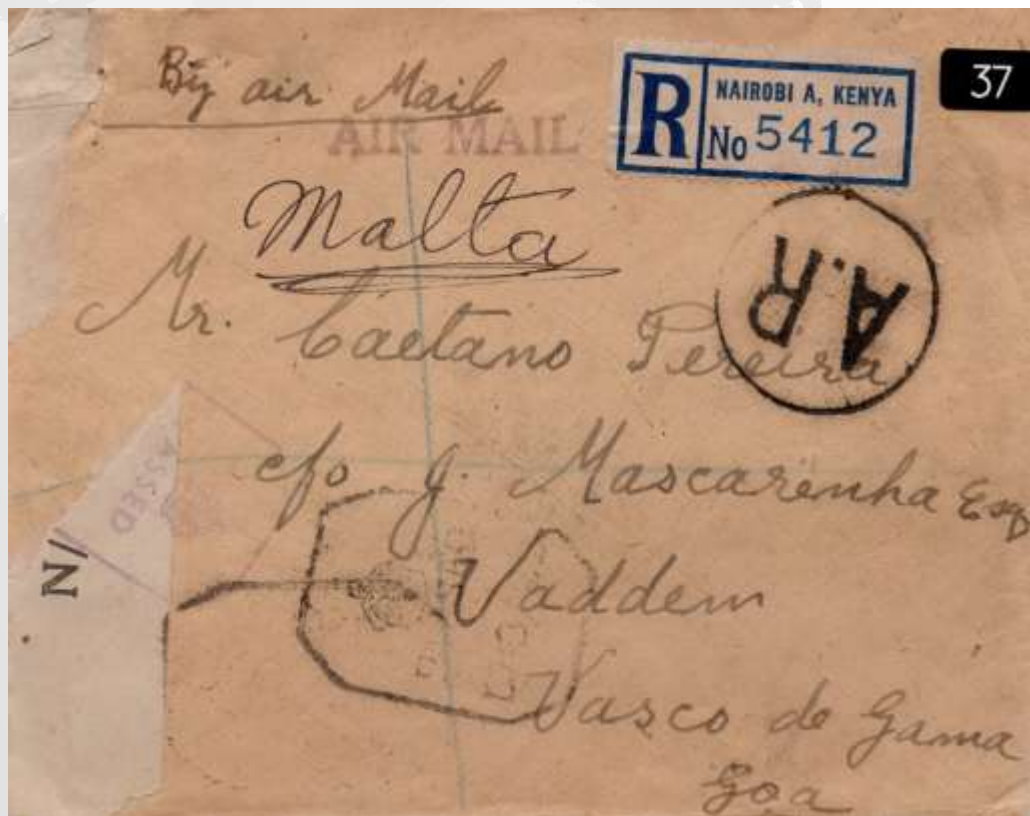 By air Mail
AIR MAIL
R
NAIROBI A, KENYA
No 5412
37
Malta
A.R
Mr. Caetano Pereira
c/o J. Mascarenha Esq
Vaddem
Vasco de Gama
Goa
ASSED
N/